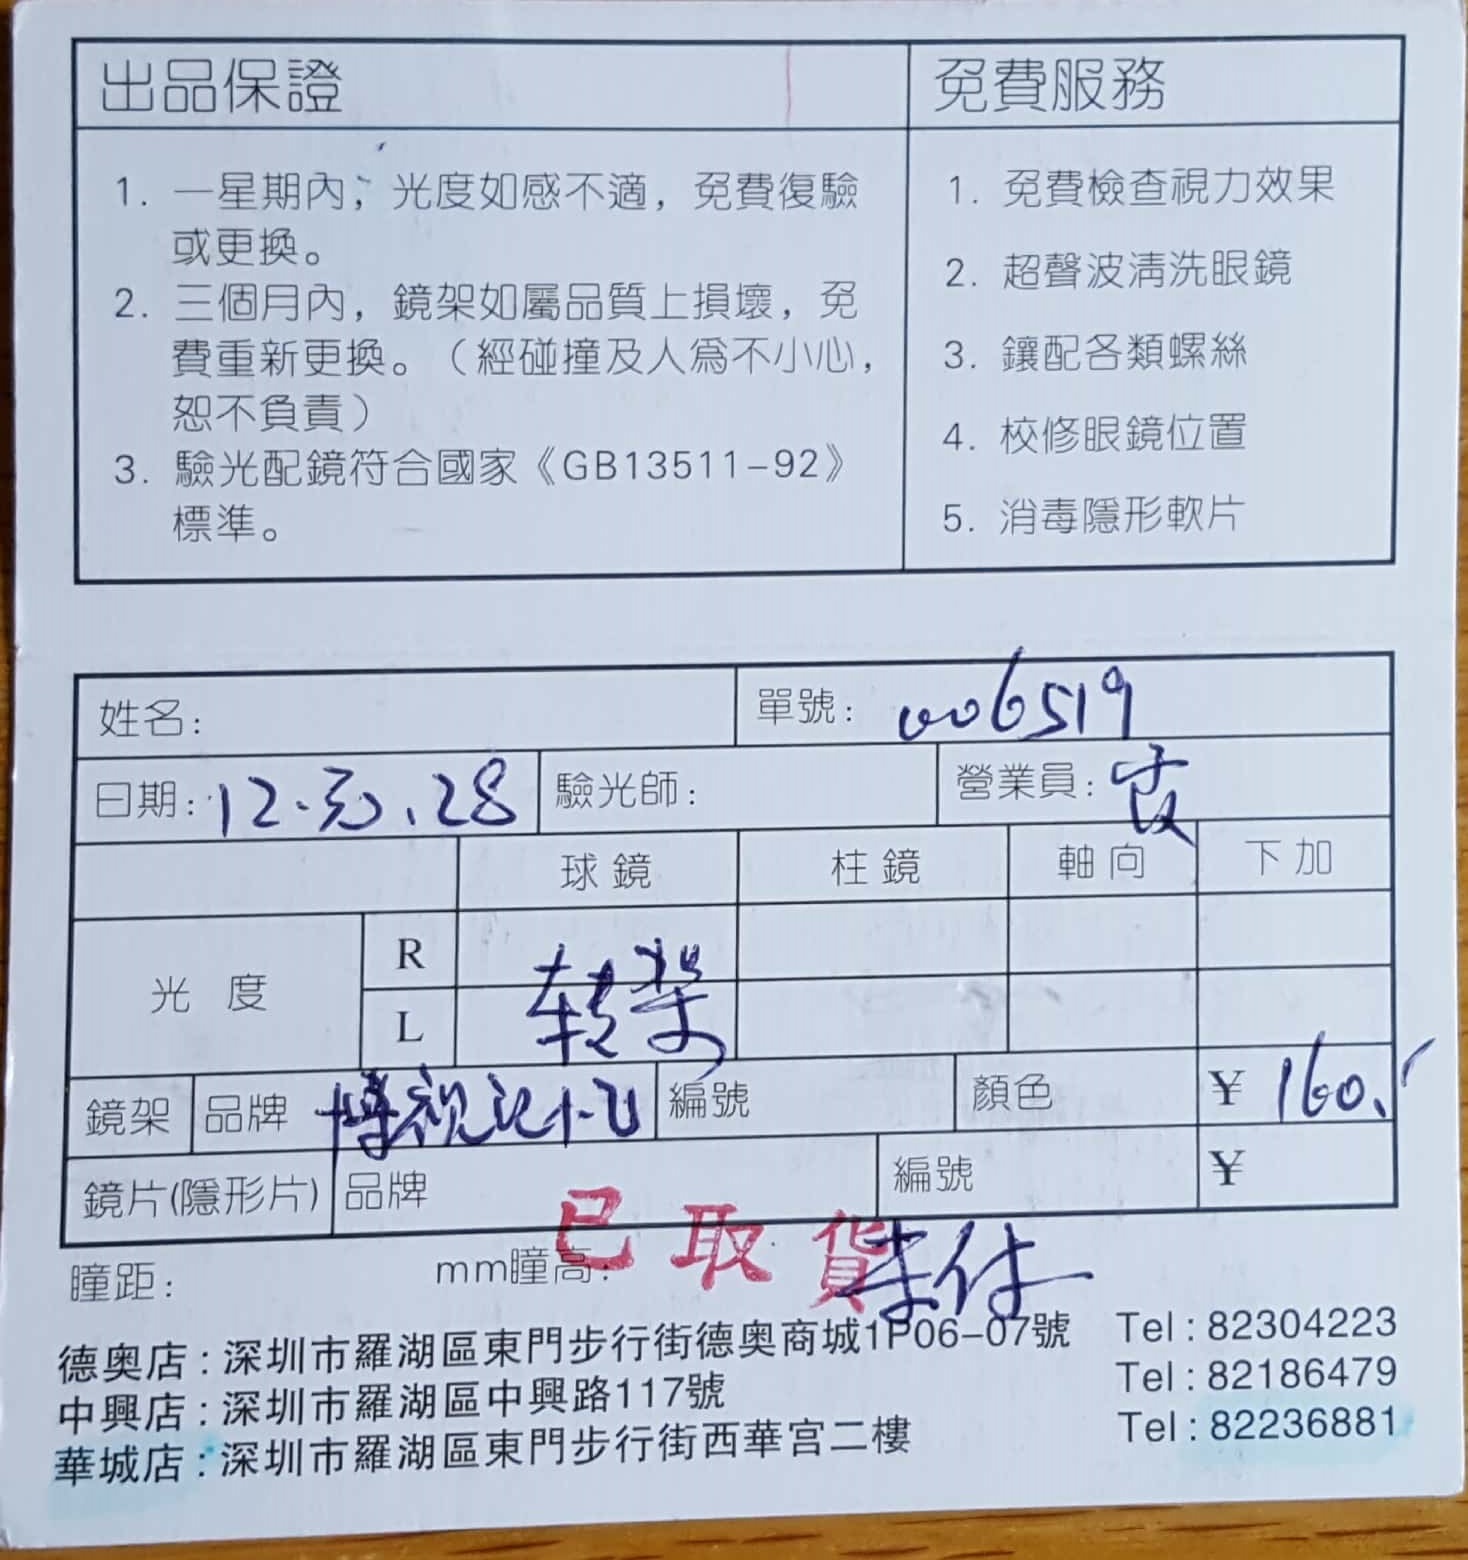 出品保證
1. 一星期內，光度如感不適，免費復驗
或更換。
2. 三個月內，鏡架如屬品質上損壞，免
費重新更換。（經碰撞及人爲不小心，
恕不負責）
3. 驗光配鏡符合國家《GB13511-92》
標準。
免費服務
1. 免費檢查視力效果
2. 超聲波清洗眼鏡
3. 鑲配各類螺絲
4. 校修眼鏡位置
5. 消毒隱形軟片
姓名: 單號: 006519
日期: 12. .28 驗光師: 營業員:
球鏡 柱鏡 軸向 下加
光度 R
转架
L
鏡架 品牌 博视 編號 顏色 ¥ 160.
鏡片(隱形片) 品牌 編號 ¥
已取貨
瞳距: mm瞳高:
德奥店:深圳市羅湖區東門步行街德奥商城1P06-07號 Tel:82304223
中興店:深圳市羅湖區中興路117號 Tel:82186479
華城店:深圳市羅湖區東門步行街西華宫二樓 Tel:82236881